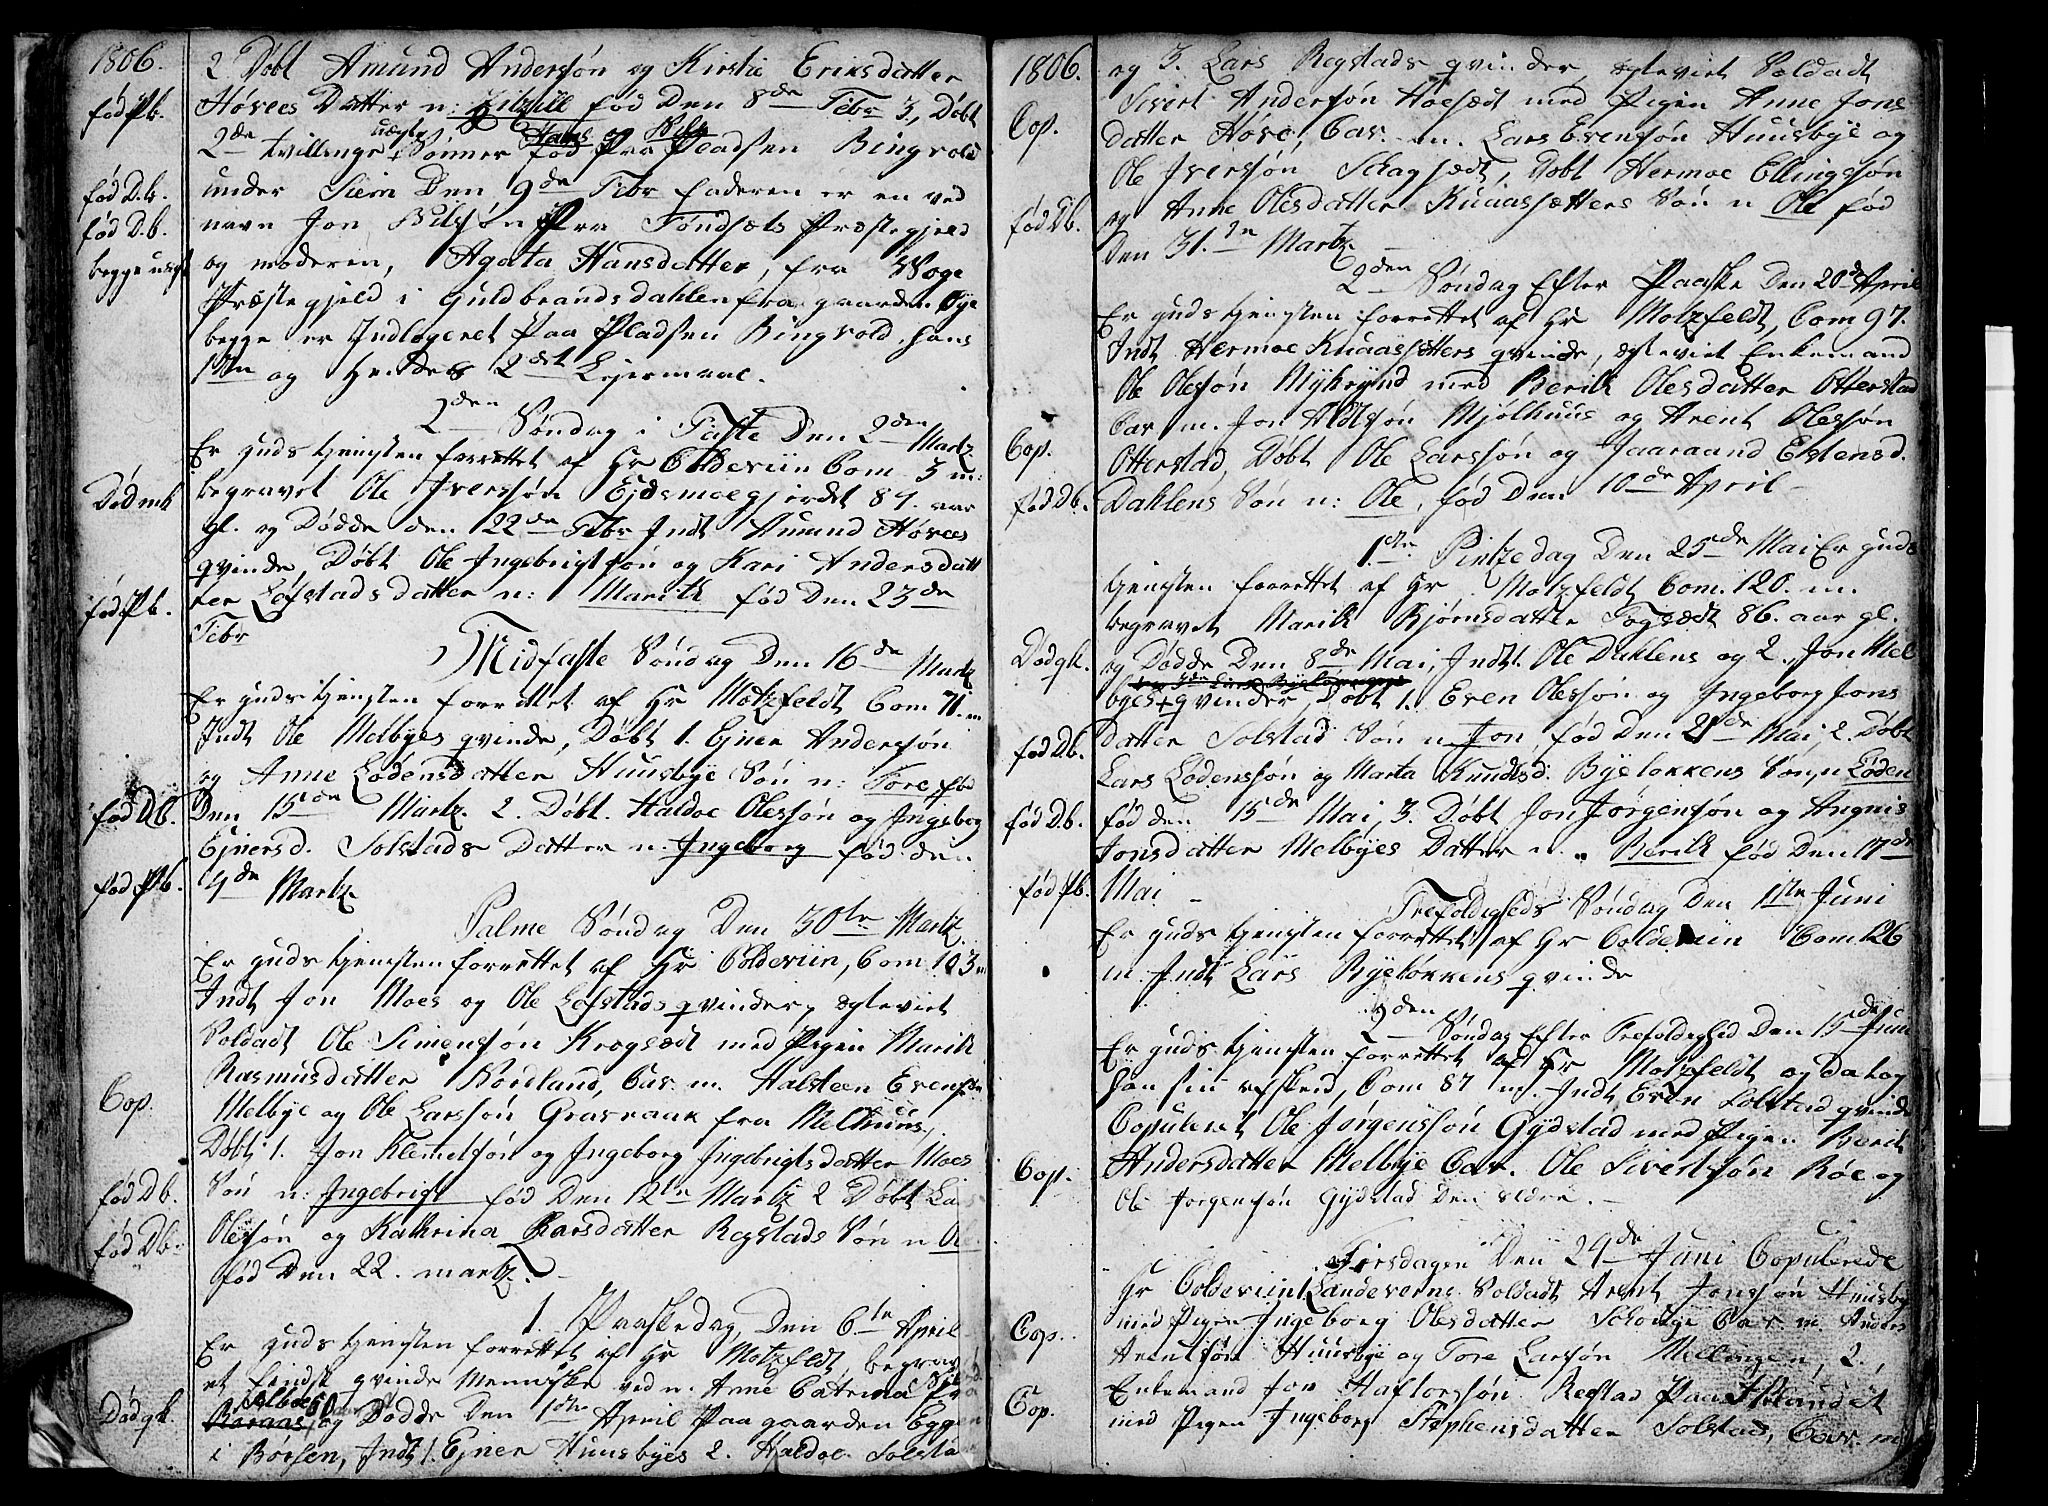 1806.
2 Døbt Amund Andersøn og Kirstie Eriksdatter
fød Pb. Høvees Datter n: Zitzill fød Den 8de Febr 3, Døbt
2de tvillinge uægte Sønner Hans og Nils fød Paa Pladsen Bingvold
fød D.b. under Siem Den 9de Febr faderen er en ved
fød D.b. navn Jon Nilsøn Fra Tøndsæts Præstegield
begge uægt og moderen, Agata Hansdatter, fra Woge
Præstegjeld i Guldbrandsdahlen fra gaarden Øye
begge er Indlogeret Paa Pladsen Bingvold, hans
1ste og Hendes 2det Lejermaal.
2den Søndag i Faste Den 2den Martz
Er guds tjensten forrettet af Hr Coldeviin Com 3 m:
Død mk begravet Ole Iversøn Ejdsmoegjerdet 89. aar
gl. og Dødde den 22de Febr Indt Amund Høvees
qvinde, Døbt Ole Ingebrigtsøn og Kari Andersdatt
fød Pb. rer Løfstads datter n: Marith fød Den 23de
Febr
Midfaste Søndag Den 16de Martz
Er guds tjensten forrettet af Hr Motzfeldt Com 71. m
Indt Ole Melbyes qvinde, Døbt 1. Ejner Andersøn
og Anne Lodensdatter Huusbye Søn n: Tore fød
fød Db. Den 15de Martz. 2. Døbt. Haldoe Olessøn og Ingeborg
Ejnersd. Solstads Datter n. Ingeborg fød den
fød Pb. 4de Martz
Palme Søndag Den 30te Martz.
Er guds tjensten forrettet af Hr Coldeviin, Com 103 m
Indt Jon Moes og Ole Løfstads qvinder, ægteviet
Soldadt Ole Simensøn Krogsædt med Pigen Marith
Rasmusdatter Nordland, Cav. m. Halsteen Evensøn
Cop. Melbye og Ole Larssøn Grasraak fra Melhuus,
Døbt 1. Jon Klemetsøn og Ingeborg Ingebrigtsdatter Moes
fød Db. Søn n: Ingebrigt fød Den 12te Martz 2 Døbt Lars
fød Db. Olessøn og Kathrina Larsdatter Regstads Søn n Ole
fød Den 22. martz.
1. Paaskedag, Den 6te April
Er guds tjensten forrettet af Hr Motzfeldt, begrav
et findsk qvinde menniske ved n. Anne Catrina fra
Død qk. Selboe 60 aar gl og Dødde Den 1ste April Paa gaarden Eggen
i Børsen, Indt 1. Ejner Huusbyes 2. Haldoe Solsta
1806. og 3. Lars Regstads qvinder, ægteviet Soldadt
Cop. Sivert Andersøn Hoesædt med Pigen Anne Jons
datter Høve, Cav. m. Lars Evensøn Huusbye og
Ole Iversøn Skagsædt, Døbt Hermoe Ellingssøn
fød Db. og Anne Olesdatter Knaassætters Søn n Ole fød
Den 31. te Martz
2den Søndag Efter Paaske Den 20de April
Er guds tjensten forrettet af Hr Motzfeldt, Com 97.
Indt Hermoe Knaassætters qvinde, ægteviet Enkemand
Ole Olessøn Nyhrynd med Berith Olesdatter Otterstad
Cop. Cav m. Jon Mjølhuus og Arent Olessøn
Otterstad, Døbt Ole Larssøn og Jaaraand Estensd.
fød Db. Dahlens Søn n: Ole, fød Den 10de April
1ste Pintzedag Den 25de Mai Er guds
tjensten forrettet af Hr. Motzfeldt Com. 120. m.
begravet Marith Bjørnsdatter Fogsædt 86. aar gl.
Død qk. og Dødde Den 8de Mai, Indt 1. Ole Dahlens og 2. Jon Mel
byes qvinder, Døbt 1. Even Olessøn og Ingeborg Jons
fød Db. datter Solstad Søn n Jon, fød Den 21de Mai, 2. Døbt
Lars Lodenssøn og Marta Knudtsd. Byeløkkens Søn, n Loden
fød D.b. fød den 15de Mai, 3. Døbt Jon Jørgensøn og Angnis
Jonsdatter Melbyes Datter n. Berith fød Den 17de
fød Pb. Mai
Trefoldigheds Søndag Den 1ste Juni
Er guds tjensten forrettet af Hr Coldeviin Com 126
m Indt Lars Byeløkkens qvinde
2den Søndag Efter Trefoldighed Den 15de Juni
Er guds tjensten forrettet af Hr Motzfeldt og da tog
han sin afskeed, Com 87 m. Indt Even Solstad qvinde
Copuleret Ole Jørgenssøn Gydstad med Pigen Berit
Cop. Andersdatter Melbye Cav. Ole Sivertsøn Røe og
Ole Jørgensøn Gydstad Den ældre.
Tirsdagen Den 24de Juni Copulerede
Hr Coldeviin 1. Landeværns Soldadt Arent Jonssøn Huusby
Cop. med Pigen Ingeborg Olesdatter Cav. m. Anders
Arentsøn Huusbye og Tore Larsøn Mellingen, 2.
Cop. Enkemand Jon Haftorssøn Regstad Paa Strandet
med Pigen Ingeborg Stephensdatter Solstad, Cav. m.